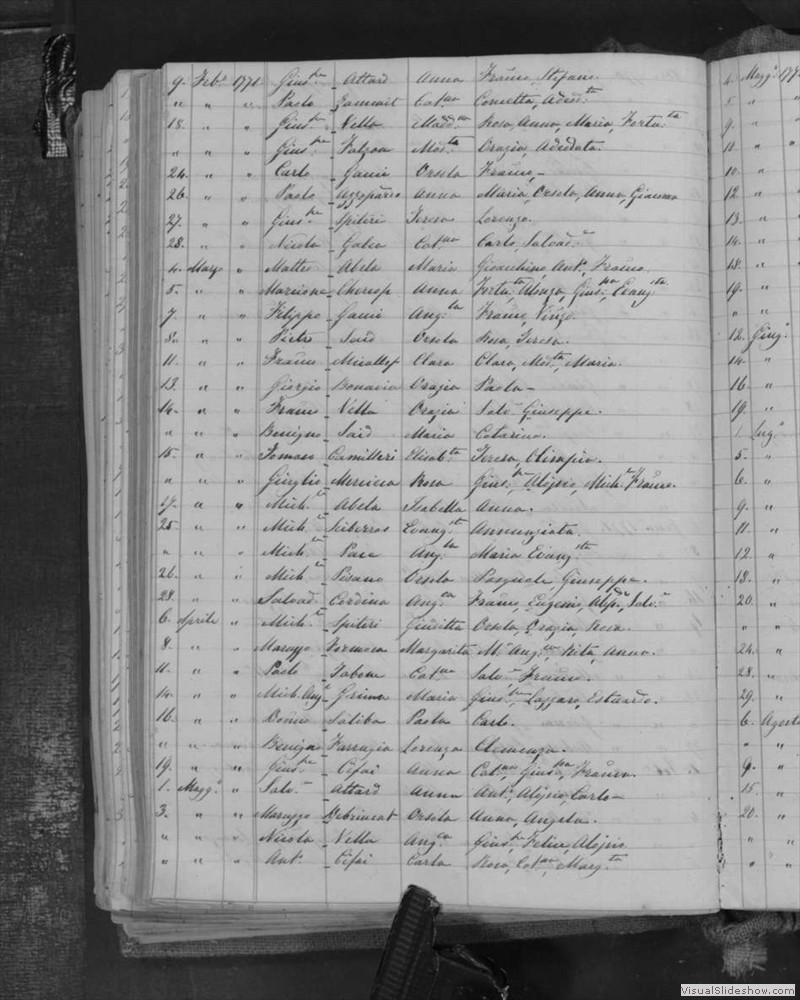 9. Feb.o 1771 Gius.pe Attard Anna Franco, Stefano.
" " " Paolo Zammit Cat.na Concetta, Adeod.ta
18. " " Gius.pe Vella Madd.na Rosa, Anna, Maria, Fortu.ta
" " " Gius.pe Falzon Mod.ta Orazia, Adeodata.
24. " " Carlo Gauci Orsola Franco,
26. " " Paolo Azzopardo Anna Maria, Orsola, Anna, Giacomo
27. " " Gius.pe Spiteri Teresa Lorenzo.
28. " " Nicola Galea Cat.na Carlo, Salvad.e
4. Marzo " Matteo Abela Maria Gioacchino, Ant.o, Franco.
5. " " Cheresp Anna Fortu.ta, Gius.pa, Evang.sta
7. " " Filippo Gauci Ang.la Franco, Vinzo.
8. " " Pietro Said Orsola Rosa, Teresa.
11. " " Franco Micallef Clara Clara, Mod.ta, Maria.
13. " " Giorgio Bonavia Orazia Paola
14. " " Franco Vella Orazia Salv.e Giuseppe.
" " " Benigno Said Maria Catarina.
15. " " Tomaso Camilleri Elisab.ta Teresa, Olimpia.
" " " Giuglio Rosa Gius.pe, Alojsio, Mich.le Franco.
27. " " Mich.le Abela Isabella Anna.
25. " " Mich.le Sciberras Evang.sta Annunziata.
" " " Mich.le Pace Ang.la Maria Evang.sta
26. " " Mich.le Pisano Orsola Pasquale, Giuseppe.
28. " " Salvad.e Cordina Ang.ca Franco, Eugenio, Salv.e
6. Aprile " Mich.le Spiteri Giuditta Orsola, Orazia, Rosa.
8. " " Maruzzo Formosa Margarita M.a Ang.ca Rita, Anna.
11. " " Paolo Tabone Cat.na Salv.e Franco.
14. " " Mich. Ang.o Grima Maria Gius.pe, Lazzaro,
16. " " Saliba Paola Carlo.
" " " Benigno Farrugia Lorenza Clemenza.
19. " " Gius.pe Cifai Anna Cat.na, Gius.pa, Franca.
1. Magg.o " Salv.e Attard Anna Ant.o, Alojsio, Carlo
3. " " Maruzzo Debrincat Orsola Anna, Angela.
" " " Nicola Vella Ang.ca Gius.pe Felice, Alojsio
" " " Ant.o Cifai Carla Rosa, Cat.na, Marg.ta
4. Magg.o 177
5. " "
9. " "
11. " "
10. "
12. "
13. "
14. "
18. "
19. "
" "
12. Giug.o
14. "
16. "
19. "
1. Lug.o
5. "
6. "
9. "
11. "
12. "
18. "
20. "
" "
24. "
28. "
29. "
6. Agosto
" "
9. "
15. "
20. "
" "
" "
VisualSlideshow.com